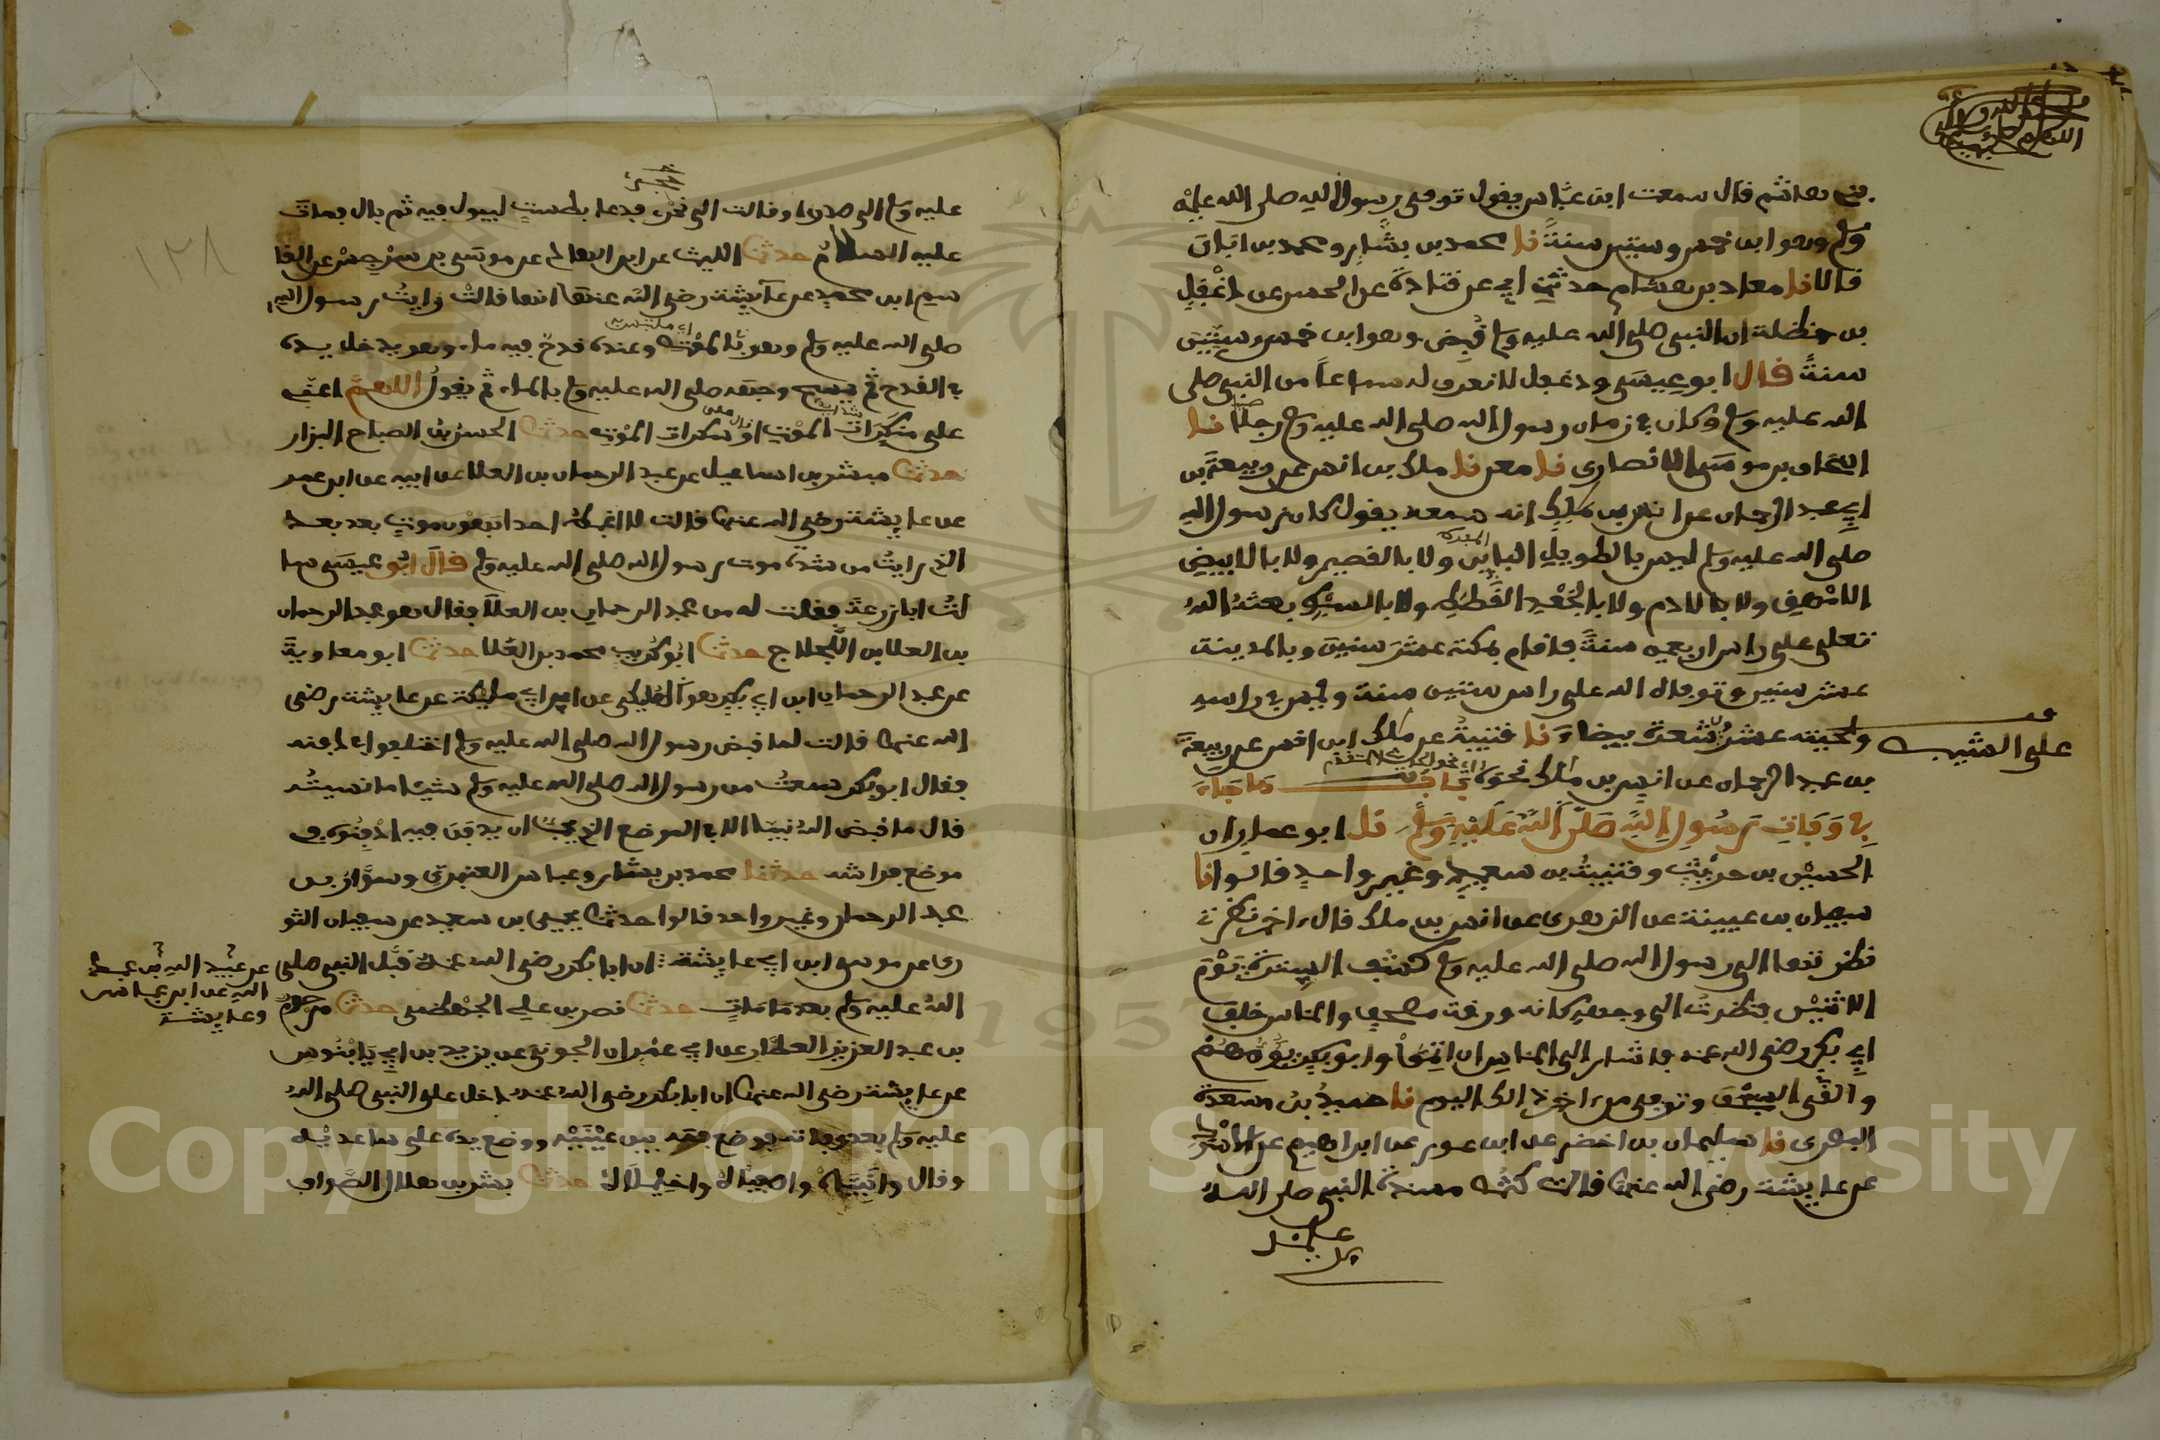 بني هاشم قال سمعت ابن عباس يقول توفي رسول الله صلى الله عليه
وسلم وهو ابن خمس وستين سنة نا محمد بن بشار ومحمد بن ابان
قالا نا معاذ بن هشام حدثني ابي عن قتادة عن الحسن عن دغفل
بن حنظلة ان النبي صلى الله عليه وسلم قبض وهو ابن خمس وستين
سنة قال ابو عيسى ودغفل لا نعرف له سماعا من النبي صلى
الله عليه وسلم وكان في زمان رسول الله صلى الله عليه وسلم رجلا نا
اسحاق بن موسى الانصاري نا معن نا ملك بن انس عن ربيعة بن
ابي عبد الرحمان عن انس بن ملك انه سمعه يقول كان رسول الله
صلى الله عليه وسلم ليس بالطويل الباين ولا بالقصير ولا بالابيض
الامهق ولا بالادم ولا بالجعد القطط ولا بالسبط بعثه الله
تعلى على راس اربعين سنة فاقام بمكة عشر سنين وبالمدينة
عشر سنين وتوفاه الله على راس ستين سنة وليس في راسه
ولحيته عشرون شعرة بيضاء نا قتيبة عن ملك ابن انس عن ربيعة
على الشيب
بن عبد الرحمان عن انس بن ملك نحوه باب ما جاء
في وفات رسول الله صلى الله عليه وسلم نا ابو عمار ان
الحسين بن حريث وقتيبة بن سعيد وغير واحد قالوا نا
سفيان بن عيينة عن الزهري عن انس بن ملك قال اخر نظرة
نظرتها الى رسول الله صلى الله عليه وسلم كشف الستارة يوم
الاثنين فنظرت الى وجهه كانه ورقة مصحف والناس خلف
ابي بكر رضي الله عنه فاشار الى الناس ان اثبتوا وابو بكر يؤمهم
والقى السجف وتوفي من اخر ذالك اليوم نا حميد بن مسعدة
البصري نا سليمان بن اخضر عن ابن عون عن ابراهيم عن الاسود
عن عايشة رضي الله عنها قالت كنت مسندة النبي صلى الله
عليه وسلم الى صدري او قالت الى حجري فدعا بطست ليبول فيه ثم بال فمات
عليه السلام حدثنا الليث عن ابن الهاد عن موسى بن سرجس عن القا
سم ابن محمد عن عايشة رضي الله عنها انها قالت رايت رسول الله
صلى الله عليه وسلم وهو بالموت وعنده قدح فيه ماء وهو يدخل يده
في القدح ثم يمسح وجهه صلى الله عليه وسلم بالماء ثم يقول اللهم اعني
على منكرات الموت او سكرات الموت حدثنا الحسن بن الصباح البزار
حدثنا مبشر بن اسماعيل عن عبد الرحمان بن العلا عن ابيه عن ابن عمر
عن عايشة رضي الله عنها قالت لا اغبط احدا بهون موت بعد
الذي رايت من شدة موت رسول الله صلى الله عليه وسلم قال ابو عيسى سا
لت ابا زرعة فقلت له من عبد الرحمان بن العلا فقال هو عبد الرحمان
بن العلا بن اللجلاج حدثنا ابو كريب محمد بن العلا حدثنا ابو معاوية
عن عبد الرحمان ابن ابي بكر هو المليكي عن ابن ابي مليكة عن عايشة رضي
الله عنها قالت لما قبض رسول الله صلى الله عليه وسلم اختلفوا في دفنه
فقال ابو بكر سمعت من رسول الله صلى الله عليه وسلم شيئا ما نسيته
قال ما قبض الله نبيا الا في الموضع الذي يحب ان يدفن فيه ادفنوه في
موضع فراشه حدثنا محمد بن بشار وعباس العنبري وسوار بن
عبد الرحمان وغير واحد قالوا حدثنا يحيى بن سعيد عن سفيان الثو
ري عن موسى ابن ابي عايشة ان ابا بكر رضي الله عنه قبل النبي صلى
عن عبيد الله بن عبد
الله عن ابن عباس
وعايشة
الله عليه وسلم بعد ما مات حدثنا نصر بن علي الجهضمي حدثنا مرحوم
بن عبد العزيز العطار عن ابي عمران الجوني عن يزيد بن ابي بابنوس
عن عايشة رضي الله عنها ان ابا بكر رضي الله عنه دخل على النبي صلى الله
عليه وسلم بعد وفاته فوضع فمه بين عينيه ووضع يده على ساعديه
وقال وانبياه واصفياه واخليلاه حدثنا بشر بن هلال الصواف
١٢٨
Copyright © King Saud University
1957